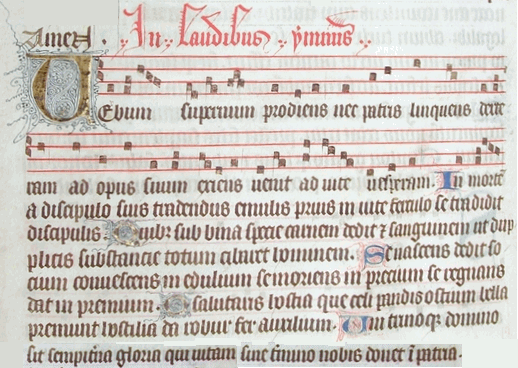 Amen. In laudibus ymnus
Uerbum supernum prodiens nec patris linquens dexte
ram ad opus suum exiens uenit ad uite uesperam. In morte
a discipulo suis tradendus emulis prius in uite ferculo se tradidit
discipulis Quibꝫ sub bina specie carnem dedit ⁊ sanguinem ut dup
plicis substancie totum cibaret hominem. Se nascens dedit so
cium conuescens in edulium se moriens in precium se regnans
dat in premium. O salutaris hostia que celi pandis ostium bella
premunt hostilia da robur fer auxilium. Uni trinoqꝫ domino
sit sempit̾na gloria qui uitam sine t̾mino nobis donet ī patria.